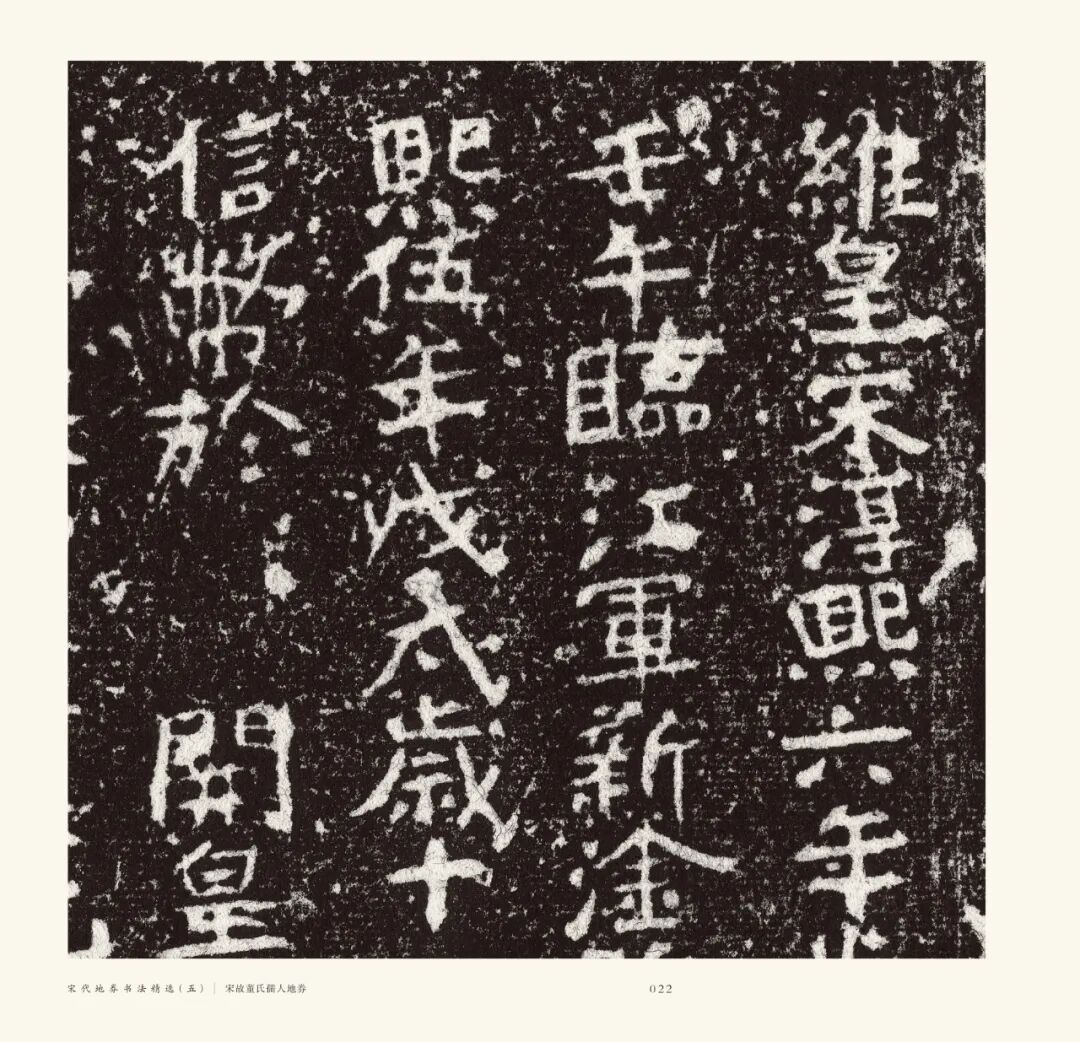 維皇宋淳熙六年
壬午臨江軍新淦
熙伍年戊太歲十
信幣於 開皇
宋代地券书法精选（五）｜宋故童氏孺人地券
022